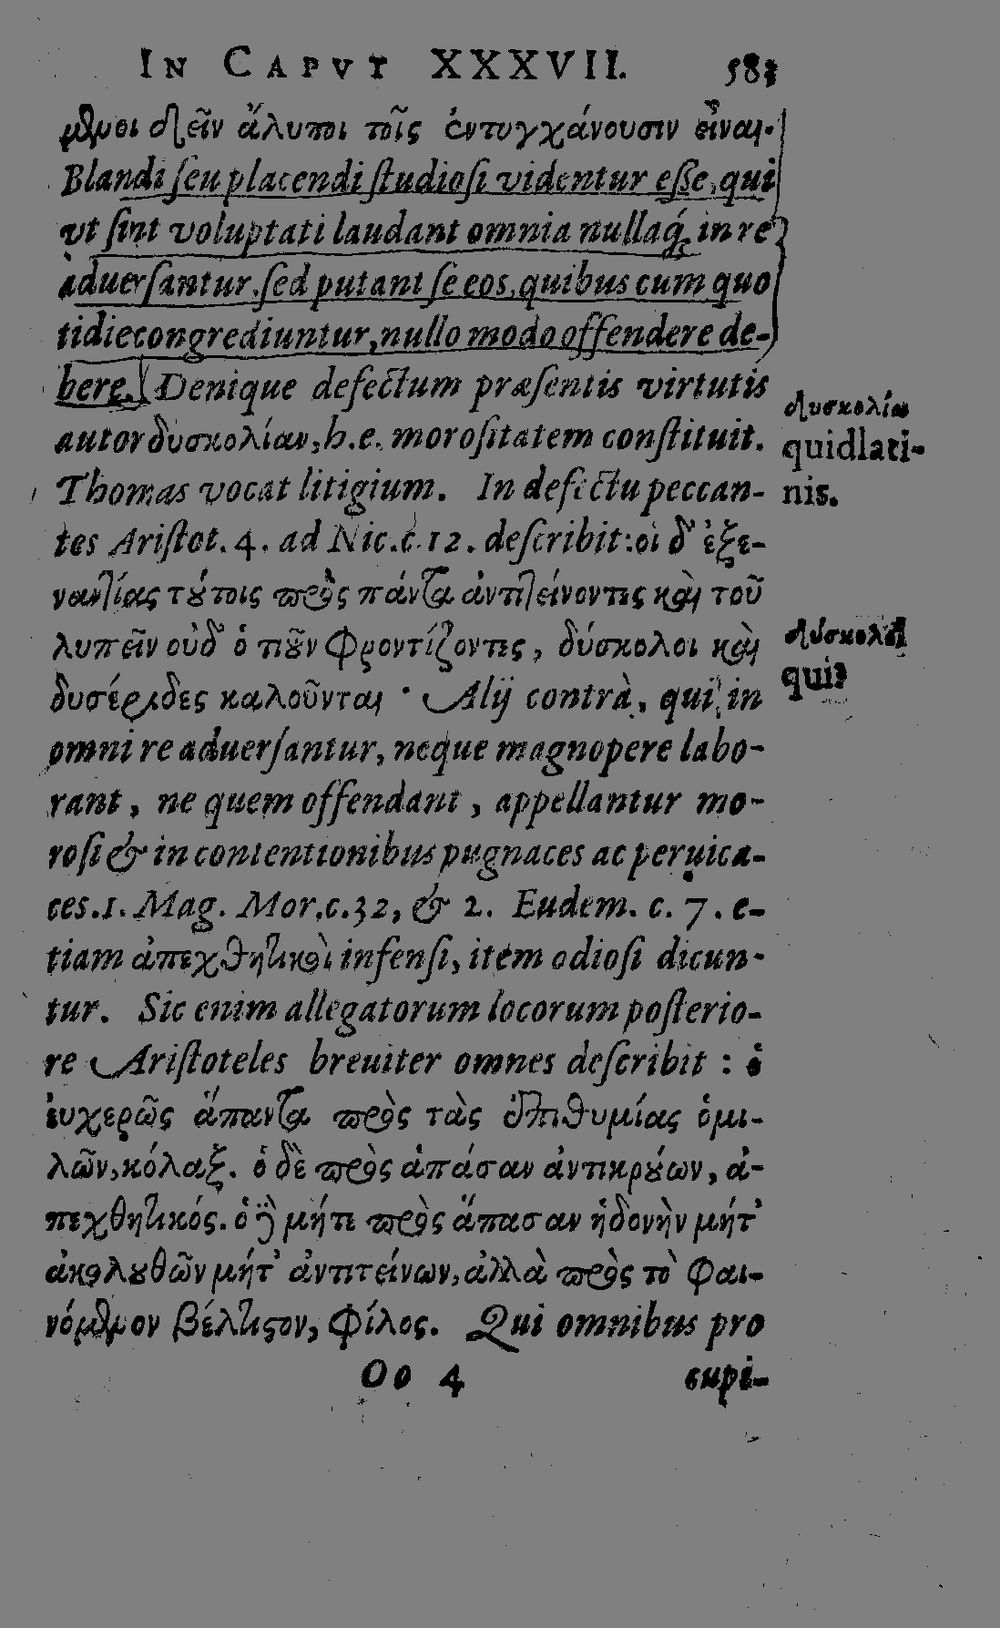 IN CAPVT XXXVII. 583
μϑμοι δεῖν ἄλυποι τοῖς ἐντυγχάνουσιν εἶναι.
Blandi ſeu placendi ſtudioſi videntur eſſe, qui
vt ſint voluptati laudant omnia nullaq́; in re
aduerſantur, ſed putant ſe eos, quibus cum quo
tidie congrediuntur, nullo modo offendere de-
bere. Denique defectum præſentis virtutis
autor δυσκολίαν, h.e. moroſitatem conſtituit.
Thomas vocat litigium. In defectu peccan-
tes Ariſtot. 4. ad Nic. c. 12. deſcribit: οἱ δ' ἐξε-
ναντίας τούτοις πρὸς πάντα ἀντιτείνοντες καὶ τοῦ
λυπεῖν οὐδ' ὁ τιοῦν φροντίζοντες, δύσκολοι καὶ
δυσέριδες καλοῦνται · Alij contrà, qui in
omni re aduerſantur, neque magnopere labo-
rant, ne quem offendant, appellantur mo-
roſi & in contentionibus pugnaces ac peruica-
ces. 1. Mag. Mor. c. 32, & 2. Eudem. c. 7. e-
tiam ἀπεχθητικοὶ infenſi, item odioſi dicun-
tur. Sic enim allegatorum locorum poſterio-
re Ariſtoteles breuiter omnes deſcribit: ὁ
εὐχερῶς ἅπαντα πρὸς τὰς ἐπιθυμίας ὁμι-
λῶν, κόλαξ. ὁ δὲ πρὸς ἁπάσαν ἀντικρούων, ἀ-
πεχθητικός. ὁ ἢ μήτε πρὸς ἅπασαν ἡδονὴν μήτ'
ἀκολουθῶν μήτ' ἀντιτείνων, ἀλλὰ πρὸς τὸ φαι-
νόμενον βέλτιστον, φίλος. Qui omnibus pro
Oo 4 cupi-
δυσκολία
quid lati-
nis.
δύσκολοι
qui?